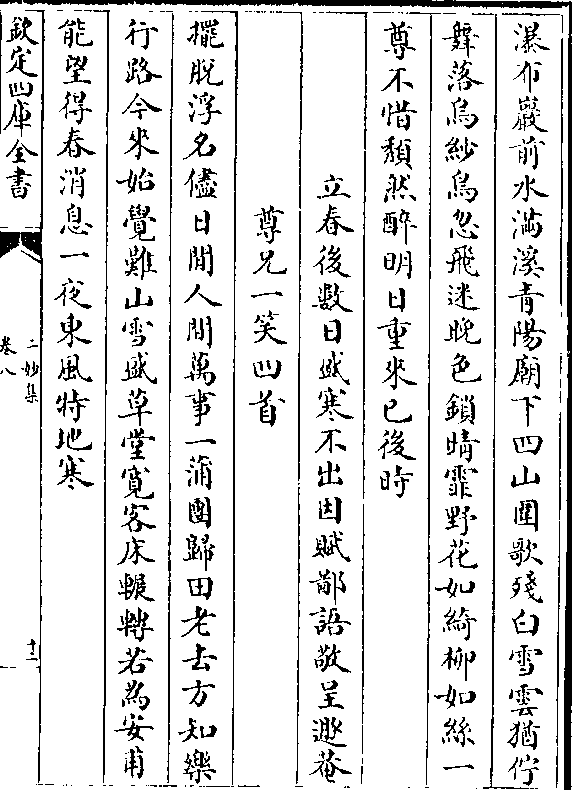 瀑布巖前水滿溪青陽廟下四山圍歌殘白雪雲猶佇
舞落烏紗鳥忽飛迷晚色鎖晴霏野花如綺柳如絲一
尊不惜頹然醉明日重來已後時
立春後數日盛寒不出因賦鄙語敬呈遯菴
尊兄一笑四首
擺脱浮名儘日閒人間萬事一蒲團歸田老去方知樂
行路今來始覺難山雪盛草堂寛客床輾轉若為安甫
能望得春消息一夜東風特地寒
欽定四庫全書
二妙集
卷八
十二